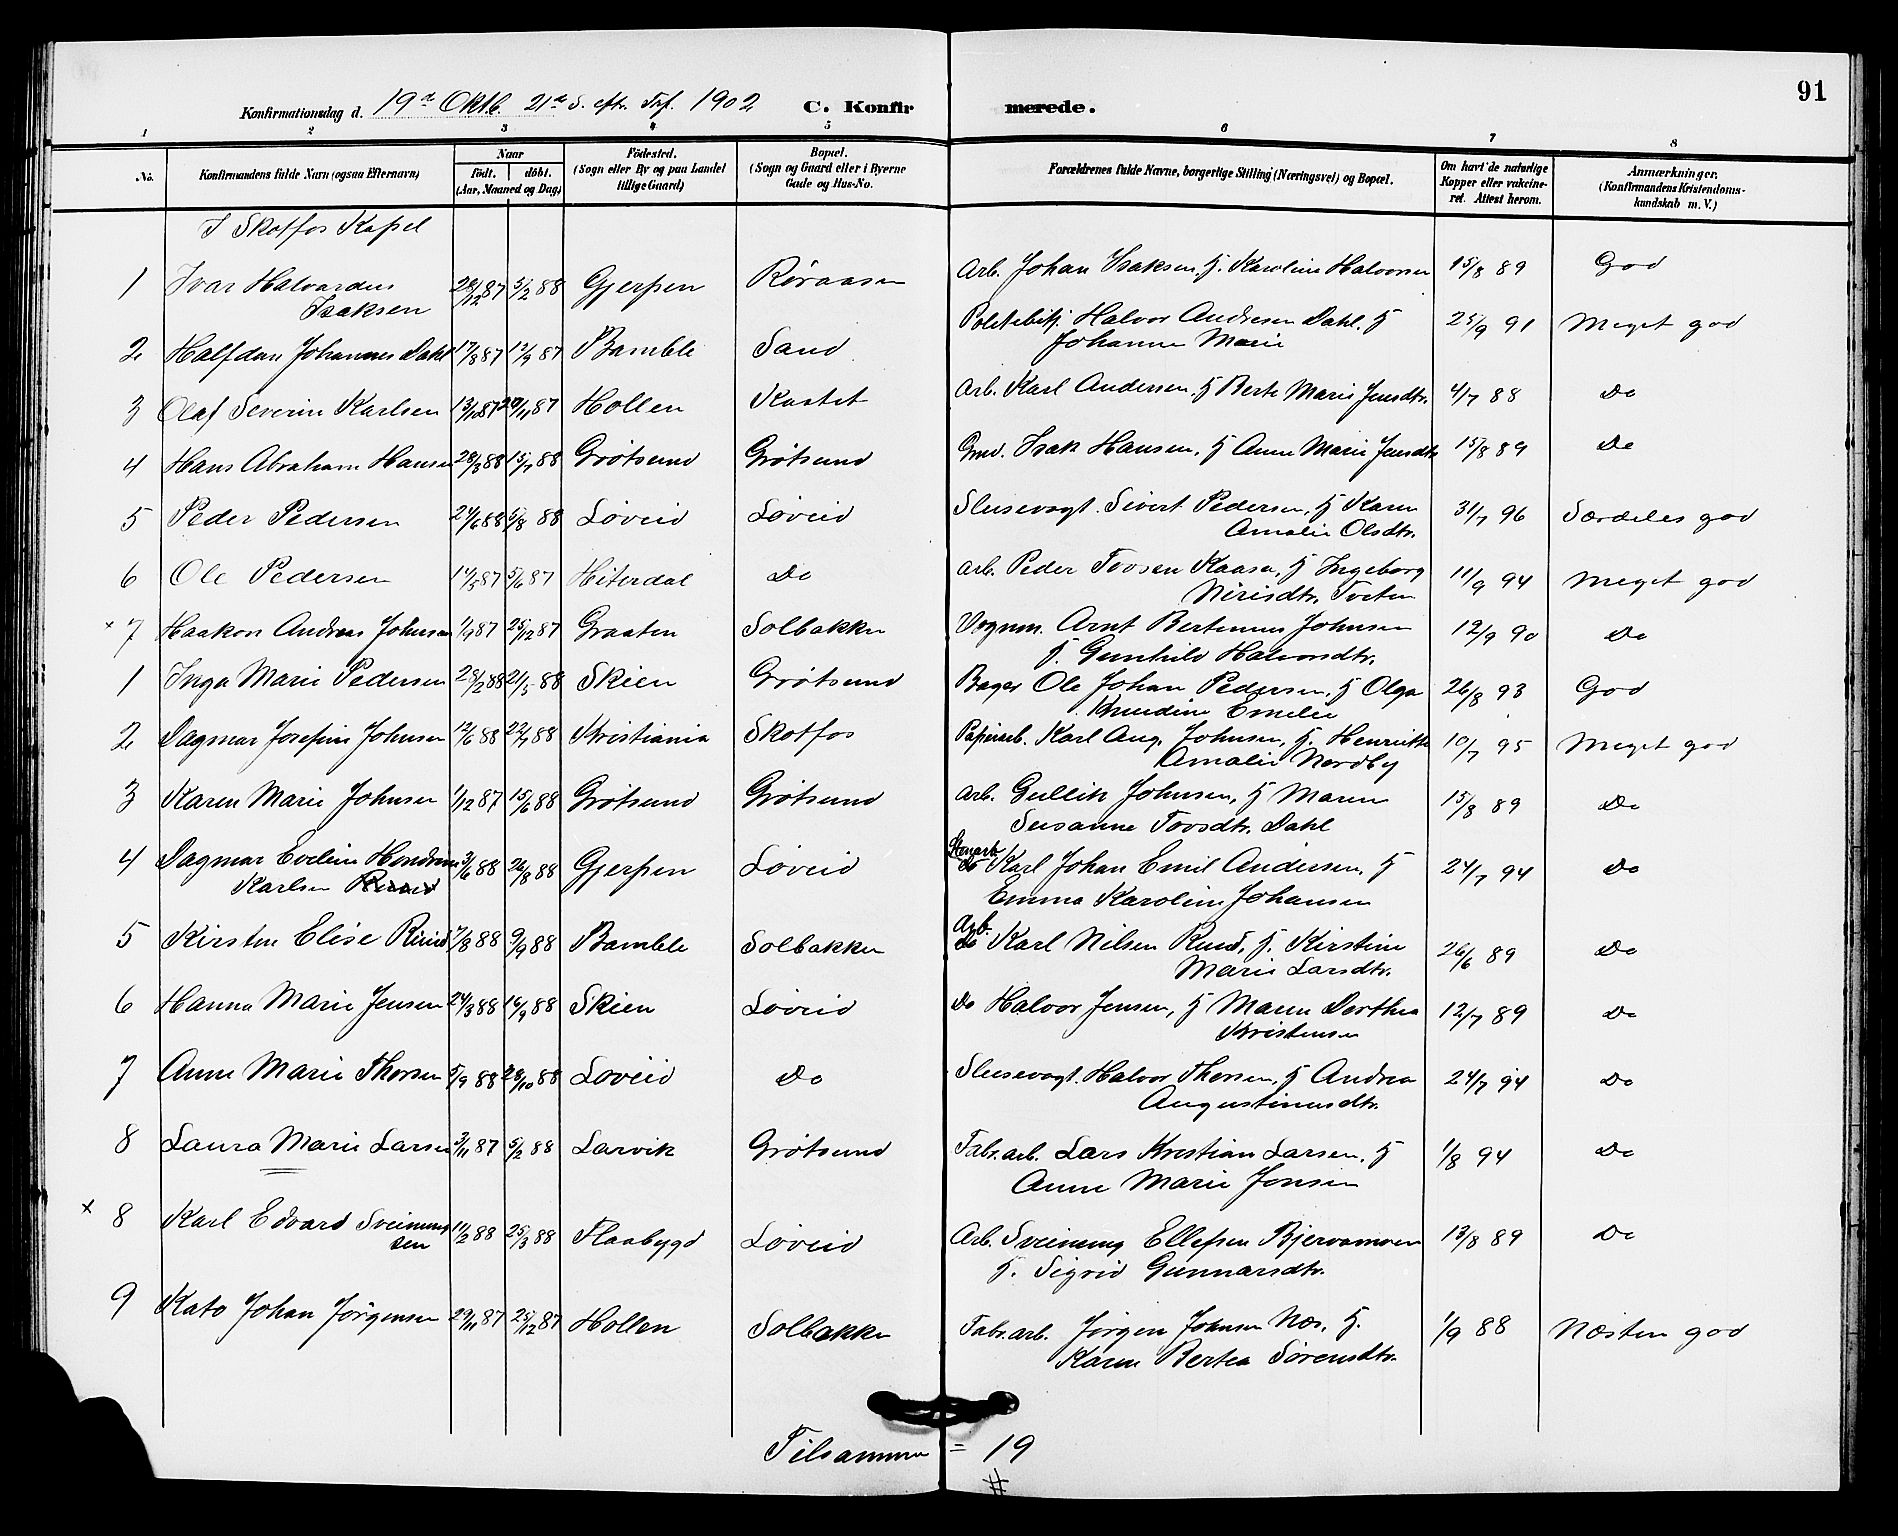 91
Konfirmationsdag d. 19de Oktb. 21de S. eftr. Trf. 1902 C. Konfirmerede.
1 2 3 4 5 6 7 8
No. Konfirmandens fulde Navn (ogsaa Efternavn) Naar födt. döbt. (Aar, Maaned og Dag) Födested. (Sogn eller By og paa Landet tillige Gaard) Bopæl. (Sogn og Gaard eller i Byerne Gade og Hus-No. Forældrenes fulde Navne, borgerlige Stilling (Næringsvei) og Bopæl. Om havt de naturlige Kopper eller vakcineret. Attest herom. Anmærkninger. (Konfirmandens Kristendomskundskab m. V.)
I Skotfos Kapel
1 Ivar Halvardus Isaksen 28/12 87 5/2 88 Gjerpen Røraasen Arb. Johan Isaksen, H. Karoline Halvorsen 15/8 89 God
2 Halfdan Johannes Dahl 17/8 87 12/9 87 Bamble Sand Politibetj. Halvor Andresen Dahl, H Johanne Marie 25/9 91 Meget god
3 Olaf Severin Karlsen 13/10 87 20/11 87 Hollen Kastet Arb. Karl Andersen, H Berte Marie Jensdtr. 4/7 88 Do
4 Hans Abraham Hansen 28/3 88 15/7 88 Grøtsund Grøtsund Gmd. Isak Hansen, H Anne Marie Jensdtr 15/8 89 Do
5 Peder Pedersen 24/6 88 5/8 88 Løveid Løveid Slusevagt. Sivert Pedersen, H Karen Amalie Olsdtr. 31/7 96 Særdeles god
6 Ole Pedersen 14/5 87 5/6 87 Hiterdal Do Arb. Peder Tovsen Kaasa, H Ingeborg Nirisdtr. Tveten 11/9 94 Meget god
× 7 Haakon Andreas Johnsen 1/9 87 25/12 87 Graaten Solbakken Vognm. Arnt Bertinius Johnsen H. Gunhild Halvorsdtr. 12/9 90 Do
1 Inga Marie Pedersen 28/2 88 21/5 88 Skien Grøtsund Bager Ole Johan Pedersen, H Olga Knudine Emelie 26/8 93 God
2 Dagmar Josefine Johnsen 12/6 88 22/7 88 Kristiania Skotfos Papirarb. Karl Aug. Johnsen, H. Henrikke Amalie Nordby 10/7 95 Meget god
3 Karen Marie Johnsen 1/12 87 15/6 88 Grøtsund Grøtsund Arb. Gullik Johnsen, H Maren Susanne Tovsdtr. Dahl 15/8 89 Do
4 Dagmar Eveline Karlsen 3/6 88 26/8 88 Gjerpen Løveid Stenarb. Do Karl Johan Emil Andersen, H Emma Karoline Johansen 24/7 94 Do
5 Kirsten Elise Ruud 7/8 88 9/9 88 Bamble Solbakken Arb. Do Karl Nilsen Ruud, H. Kirstine Marie Larsdtr. 26/6 89 Do
6 Hanna Marie Jensen 24/3 88 16/9 88 Skien Løveid Do Halvor Jensen, H Maren Dorthea Kristensen 12/7 89 Do
7 Anne Marie Thorsen 5/9 88 28/10 88 Løveid Do Slusevagt. Halvor Thorsen, H Andrea Augustinusdtr. 24/7 94 Do
8 Laura Marie Larsen 3/11 87 5/2 88 Larvik Grøtsund Fabr. arb. Lars Kristian Larsen, H Anne Marie Jonsen 1/8 94 Do
× 8 Karl Edvard Sveinungsen 11/2 88 25/3 88 Flaabygd Løveid Arb. Sveinung Ellefsen Bjervamoen H. Sigrid Gunnarsdtr. 13/8 89 Do
9 Kato Johan Jørgensen 29/11 87 25/12 87 Hollen Solbakken Fabr. arb. Jørgen Johnsen Næs, H. Karen Bertea Sørensdtr. 1/9 88 Næsten god
Tilsammen = 19